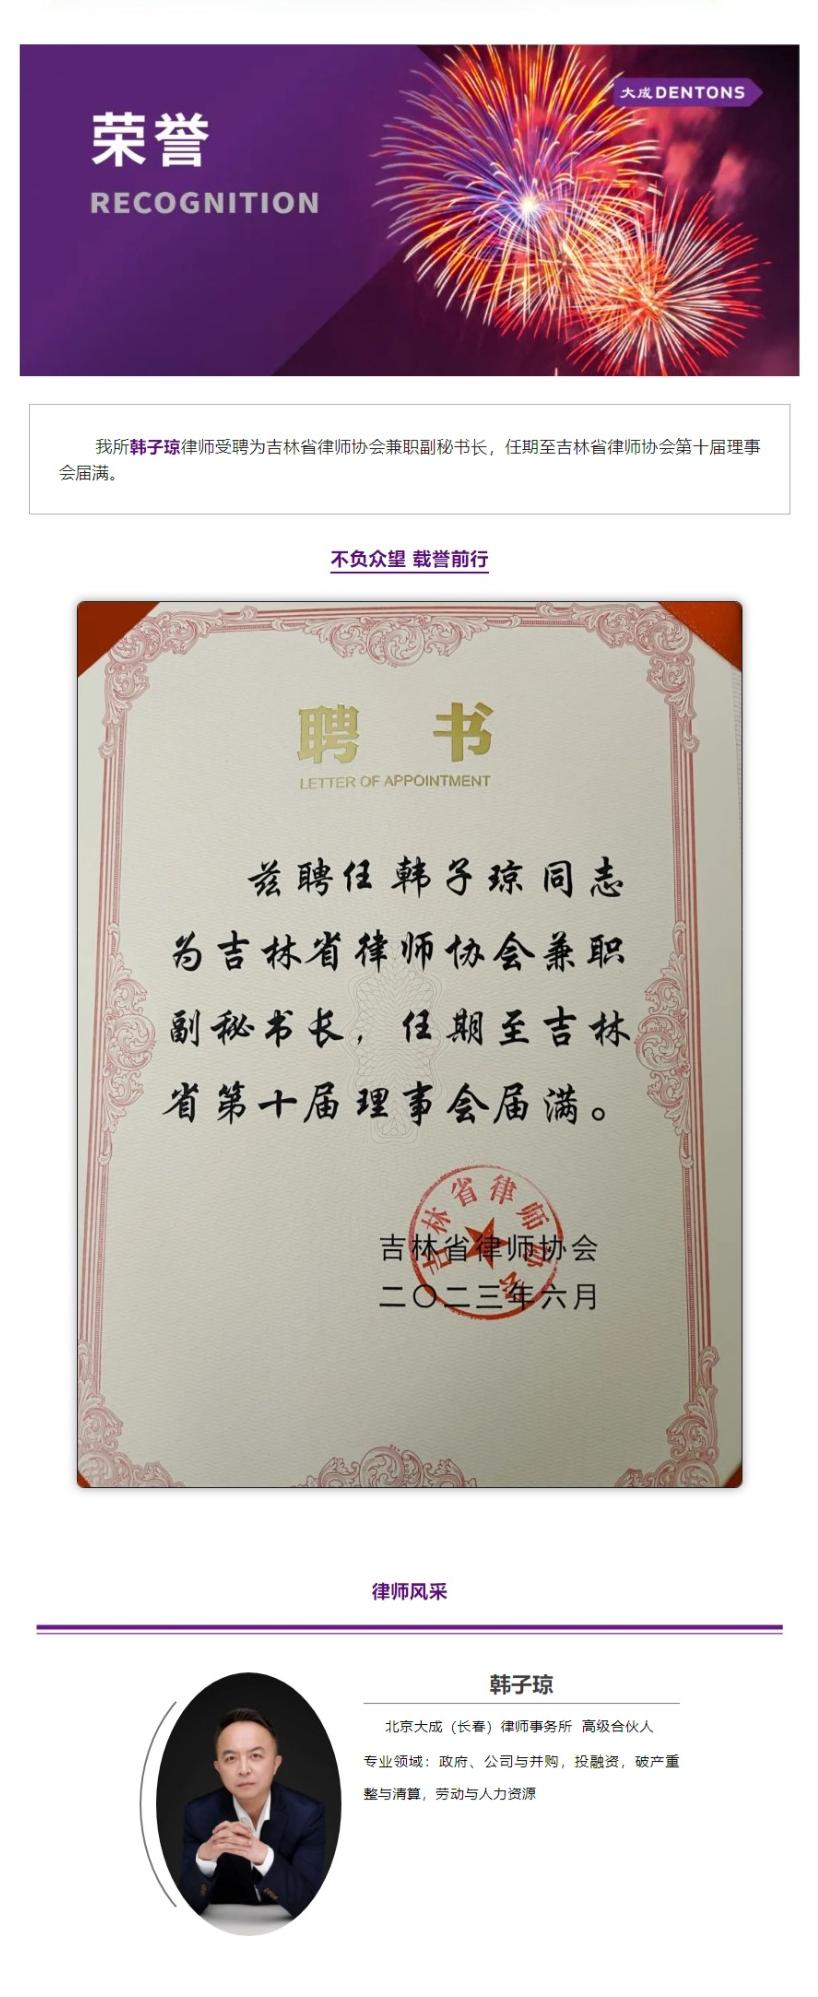 大成DENTONS
荣誉
RECOGNITION
我所韩子琼律师受聘为吉林省律师协会兼职副秘书长，任期至吉林省律师协会第十届理事
会届满。
不负众望 载誉前行
聘 书
LETTER OF APPOINTMENT
兹聘任韩子琼同志
为吉林省律师协会兼职
副秘书长，任期至吉林
省第十届理事会届满。
吉林省律师协会
吉林省律师协会
二〇二三年六月
律师风采
韩子琼
北京大成（长春）律师事务所 高级合伙人
专业领域：政府、公司与并购，投融资，破产重
整与清算，劳动与人力资源